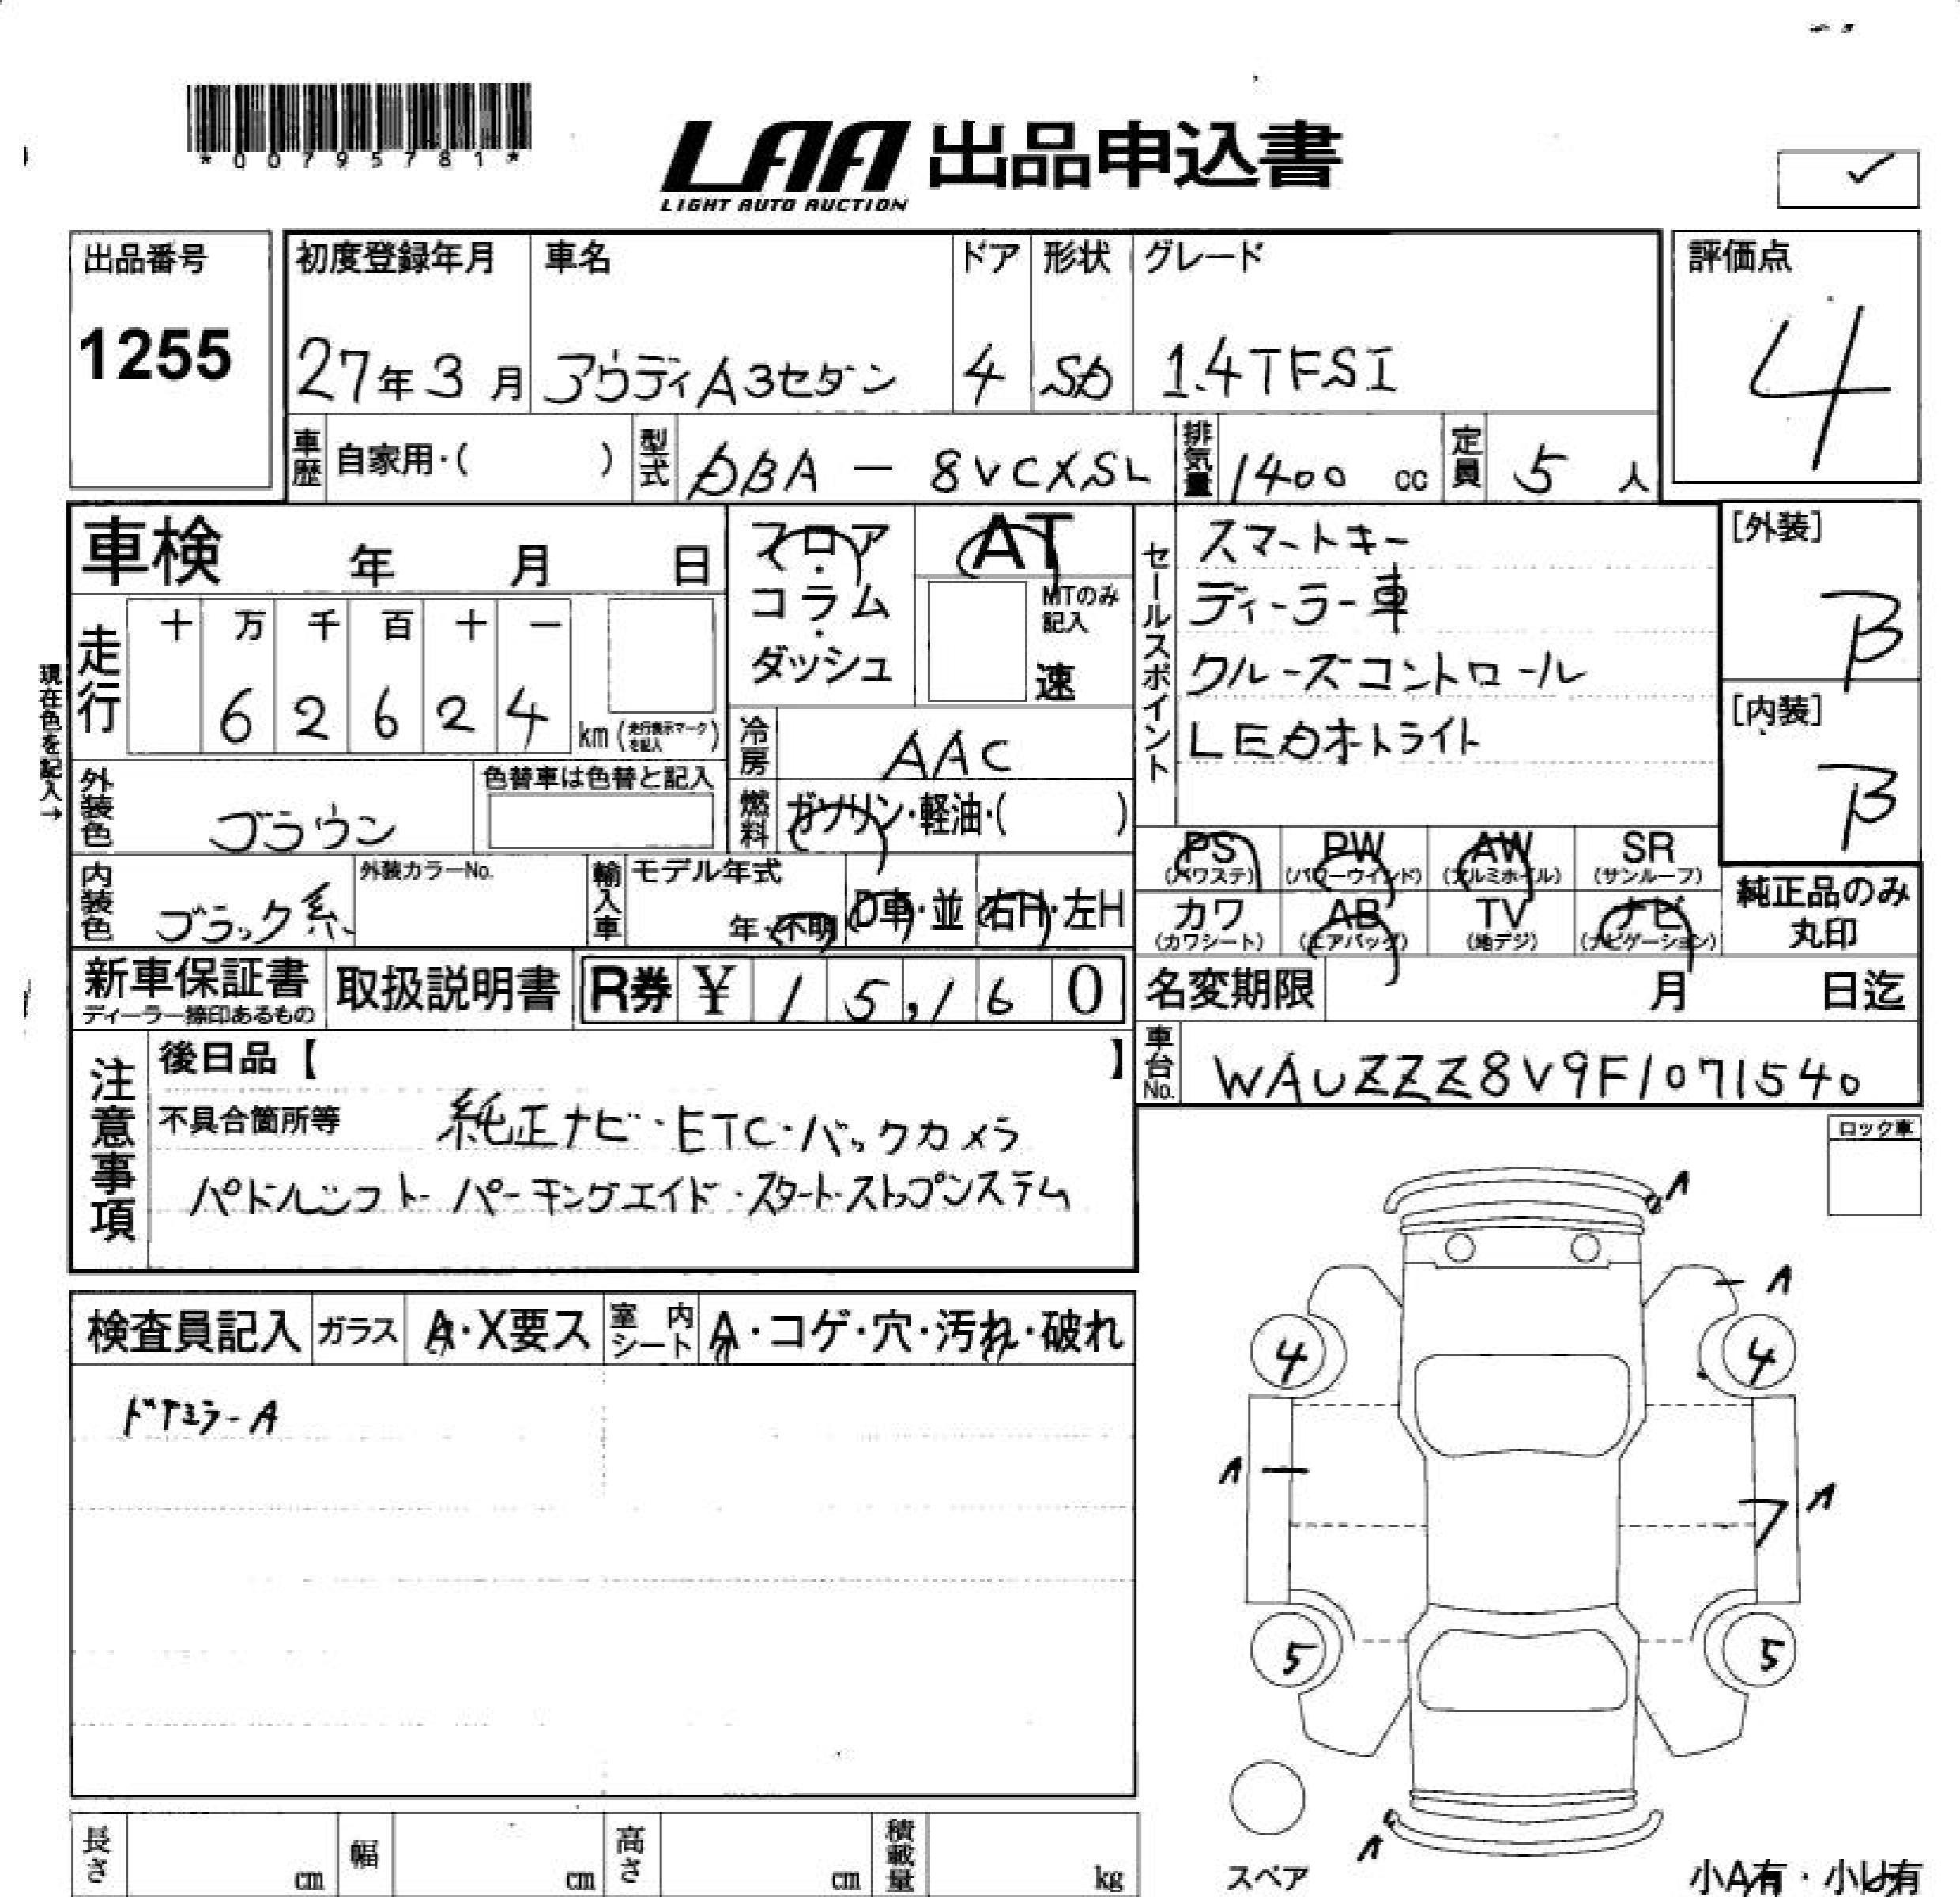 *00795781*
LAA 出品申込書
LIGHT AUTO AUCTION
✓
出品番号
1255
初度登録年月 車名 ドア 形状 グレード
27年3月 アウディA3セダン 4 SD 1.4TFSI
評価点
4
車歴 自家用・( ) 型式 DBA - 8VCXSL 排気量 1400 cc 定員 5 人
車検 年 月 日
フロア・コラム・ダッシュ
AT
MTのみ記入
速
セールスポイント
スマートキー
ディーラー車
クルーズコントロール
LEDオートライト
[外装]
B
[内装]
B
現在色を記入→
走行 十 万 千 百 十 一
6 2 6 2 4 km (走行表示マークを記入)
冷房 AAC
外装色 ブラウン
色替車は色替と記入
燃料 ガソリン・軽油・( )
内装色 ブラック系
外装カラーNo.
輸入車 モデル年式
年・不明 D車・並 右H・左H
PS (パワステ) PW (パワーウインド) AW (アルミホイル) SR (サンルーフ)
カワ (カワシート) AB (エアバッグ) TV (地デジ) ナビ (ナビゲーション)
純正品のみ丸印
新車保証書
ディーラー捺印あるもの
取扱説明書 R券 ¥ 15,160
名変期限 月 日迄
車台No. WAUZZZ8V9F1071540
注意事項
後日品【 】
不具合箇所等 純正ナビ・ETC・バックカメラ
パドルシフト パーキングエイド・スタートストップシステム
ロック車
検査員記入 ガラス A・X要ス 室内シート A・コゲ・穴・汚れ・破れ
ドアミラーA
A
A
4 4
A
A
5 5
A
スペア
小A有・小U有
長さ cm 幅 cm 高さ cm 積載量 kg